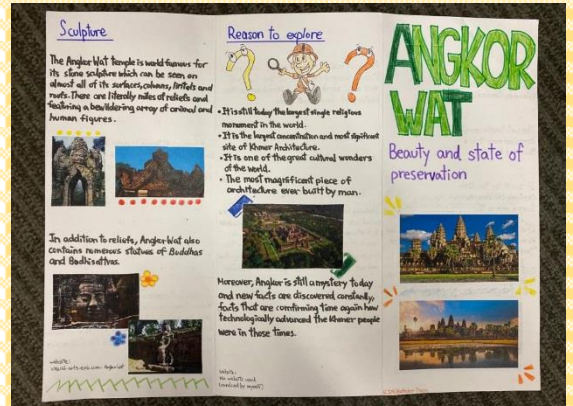 Sculpture
The Angkor Wat temple is world famous for
its stone sculpture which can be seen on
almost all of its surfaces, columns, lintels and
roofs. There are literally miles of reliefs and
featuring a bewildering array of animal and
human figures.
In addition to reliefs, Angkor Wat also
contains numerous statues of Buddhas
and Bodhisattvas.
website:
Reason to explore
• It is still today the largest single religious
monument in the world.
• It is the largest concentration and most significant
site of Khmer Architecture.
• It is one of the great cultural wonders
of the world.
• The most magnificent piece of
architecture ever built by man.
Moreover, Angkor is still a mystery today
and new facts are discovered constantly,
facts that are comfirming time again how
technologically advanced the Khmer people
were in those times.
website:
no website used
ANGKOR
WAT
Beauty and state of
preservation